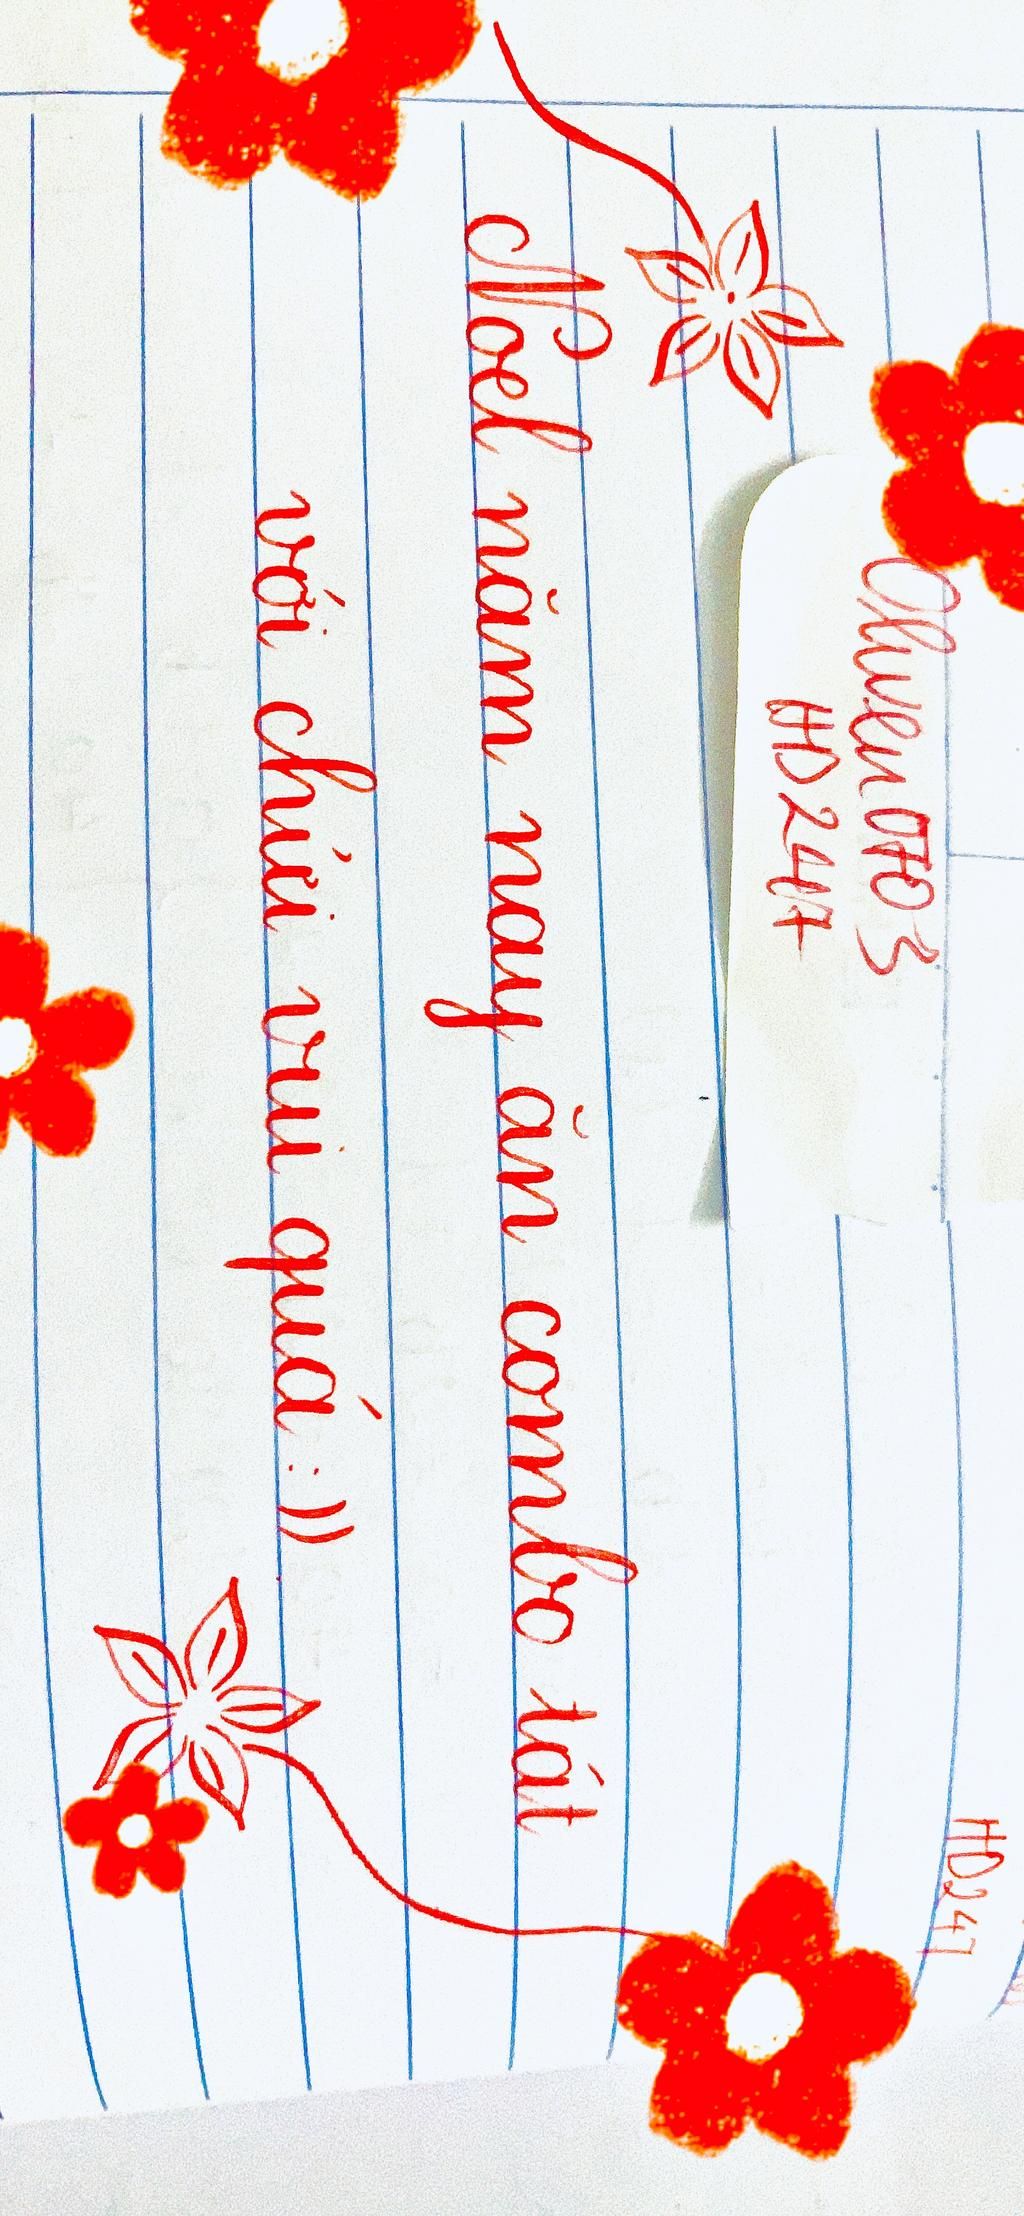 Ohwen0703
HD247
Noel năm nay ăn combo tát
với chửi vui quá :))
HD247